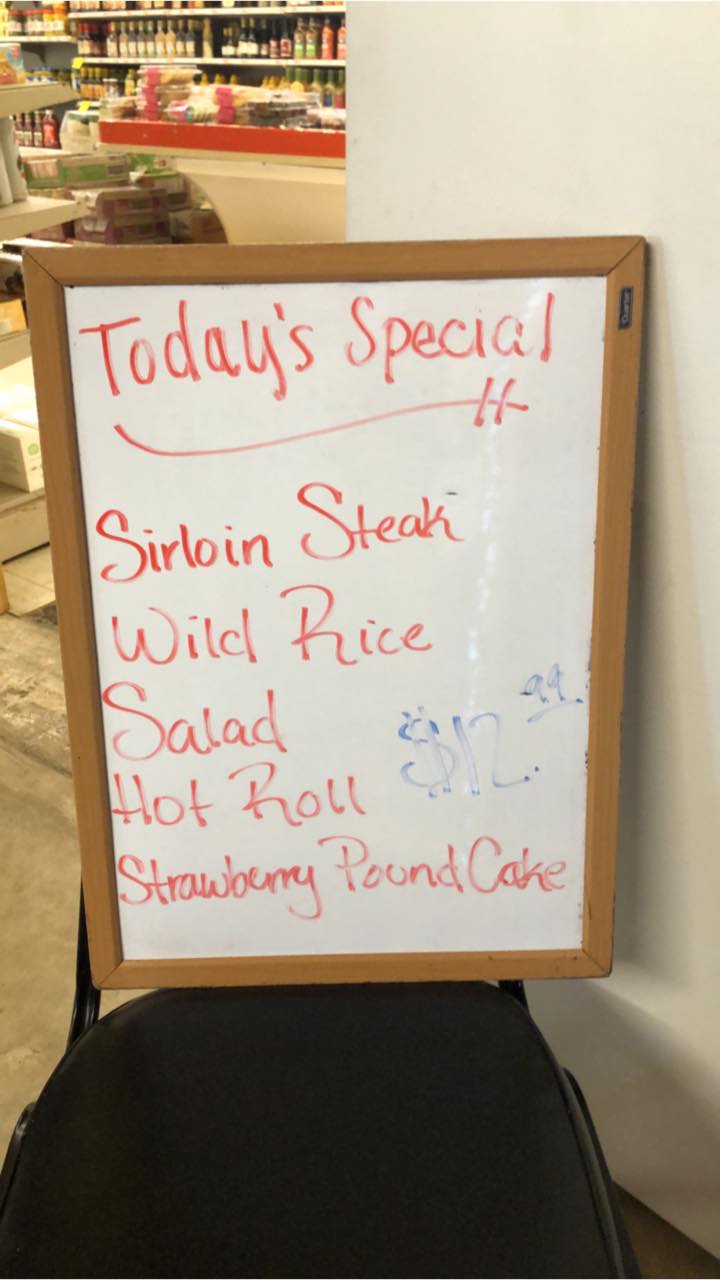 Today's Special
Sirloin Steak
Wild Rice
Salad
$12.99
Hot Roll
Strawberry Pound Cake
Quartet